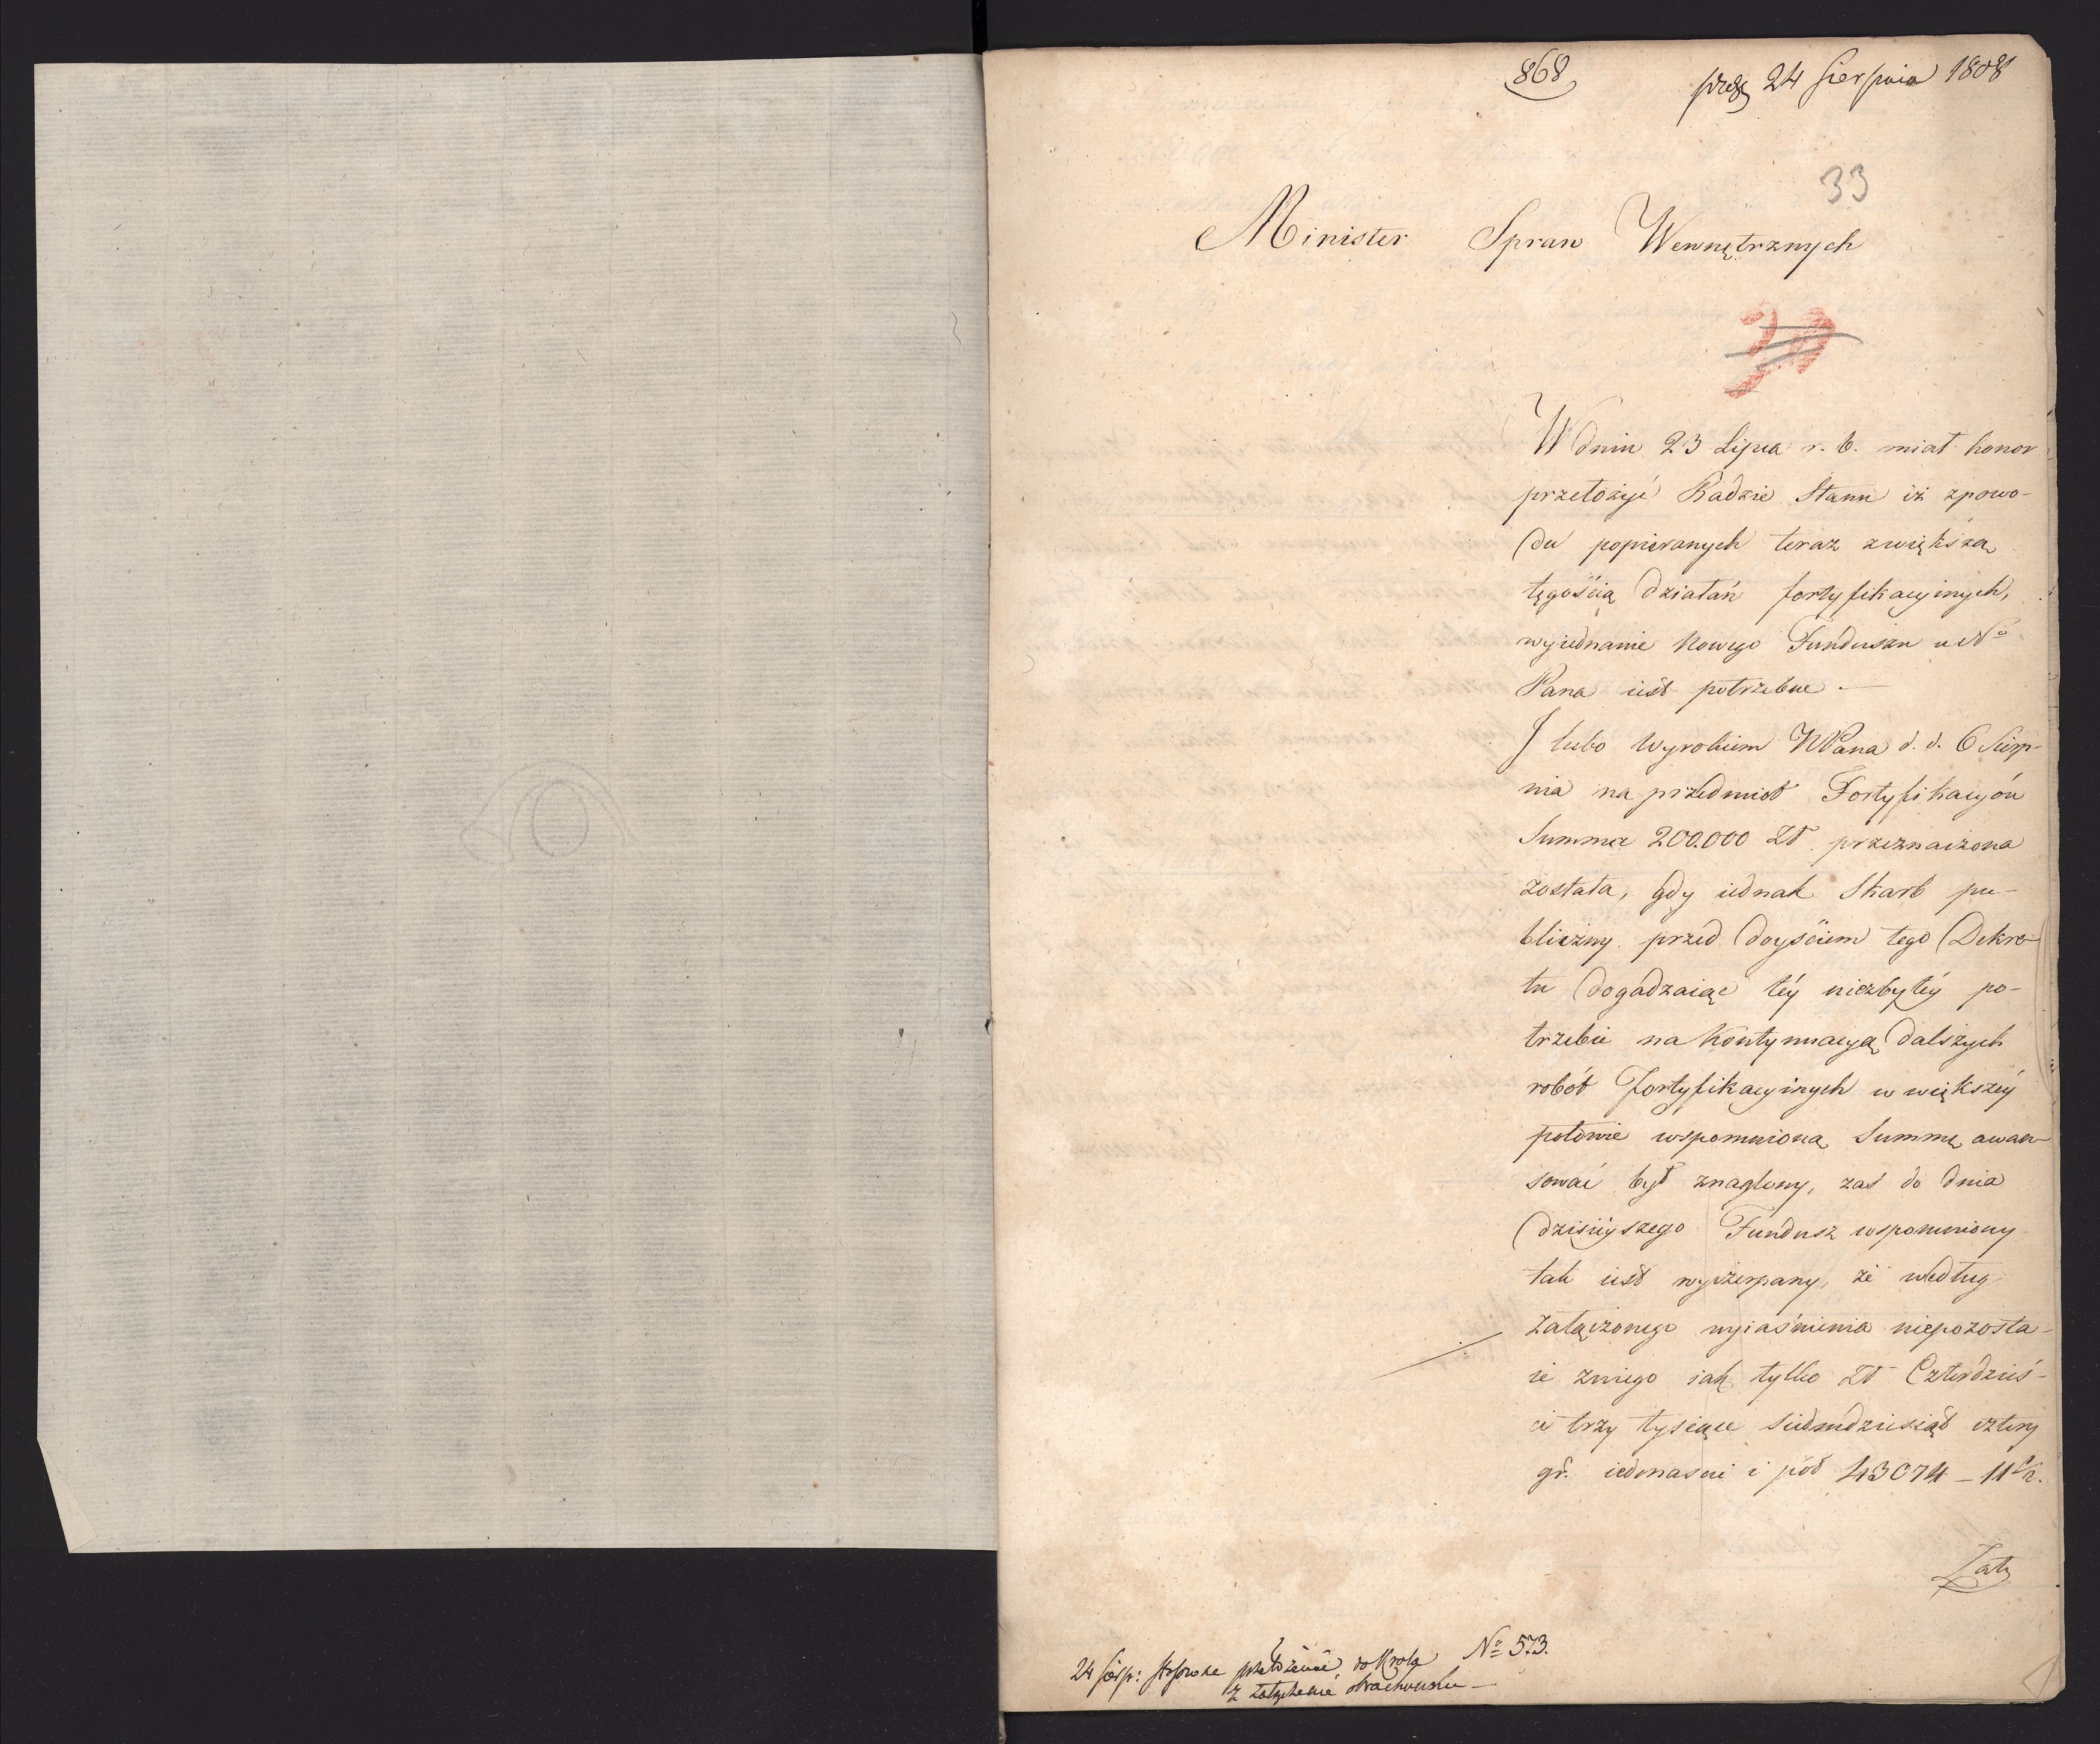 868
præs 24 Sierpnia 1808
33
Minister Spraw Wewnętrznych
W dniu 23 Lipca r. b. miał honor
przełożyć Radzie Stanu iż zpowo-
du popieranych teraz zwiększą
tęgością działań fortyfikacyinych,
wyiednanie nowego Funduszu u No
Pana iest potrzebne. —
J lubo Wyrokiem NPana d. d. 6 Sierp-
nia na przedmiot Fortyfikacyów
Summa 200.000 Zł. przeznaczona
została, gdy iednak Skarb pu-
bliczny przed doyściem tego Dekre-
tu dogadzaiąc téy niezbytéy po-
trzebie na kontynuacyą dalszych
robót Fortyfikacyinych w większéy
połowie wspomnioną Summę awan-
sować był znaglony, zaś do dnia
dzisiéyszego Fundusz wspomniony
tak iest wyczerpany, że według
załączonego wyiaśnienia niepozosta-
ie zniego iak tylko Zł Czterdzieś-
ci trzy tysiące siedmdziesiąt cztery
gr. iedenaście i pół 43074 – 11 1/2.
Zatę
24 Sierp: stosowne przełożenie do Króla No 573.
z załączenie obrachunku —